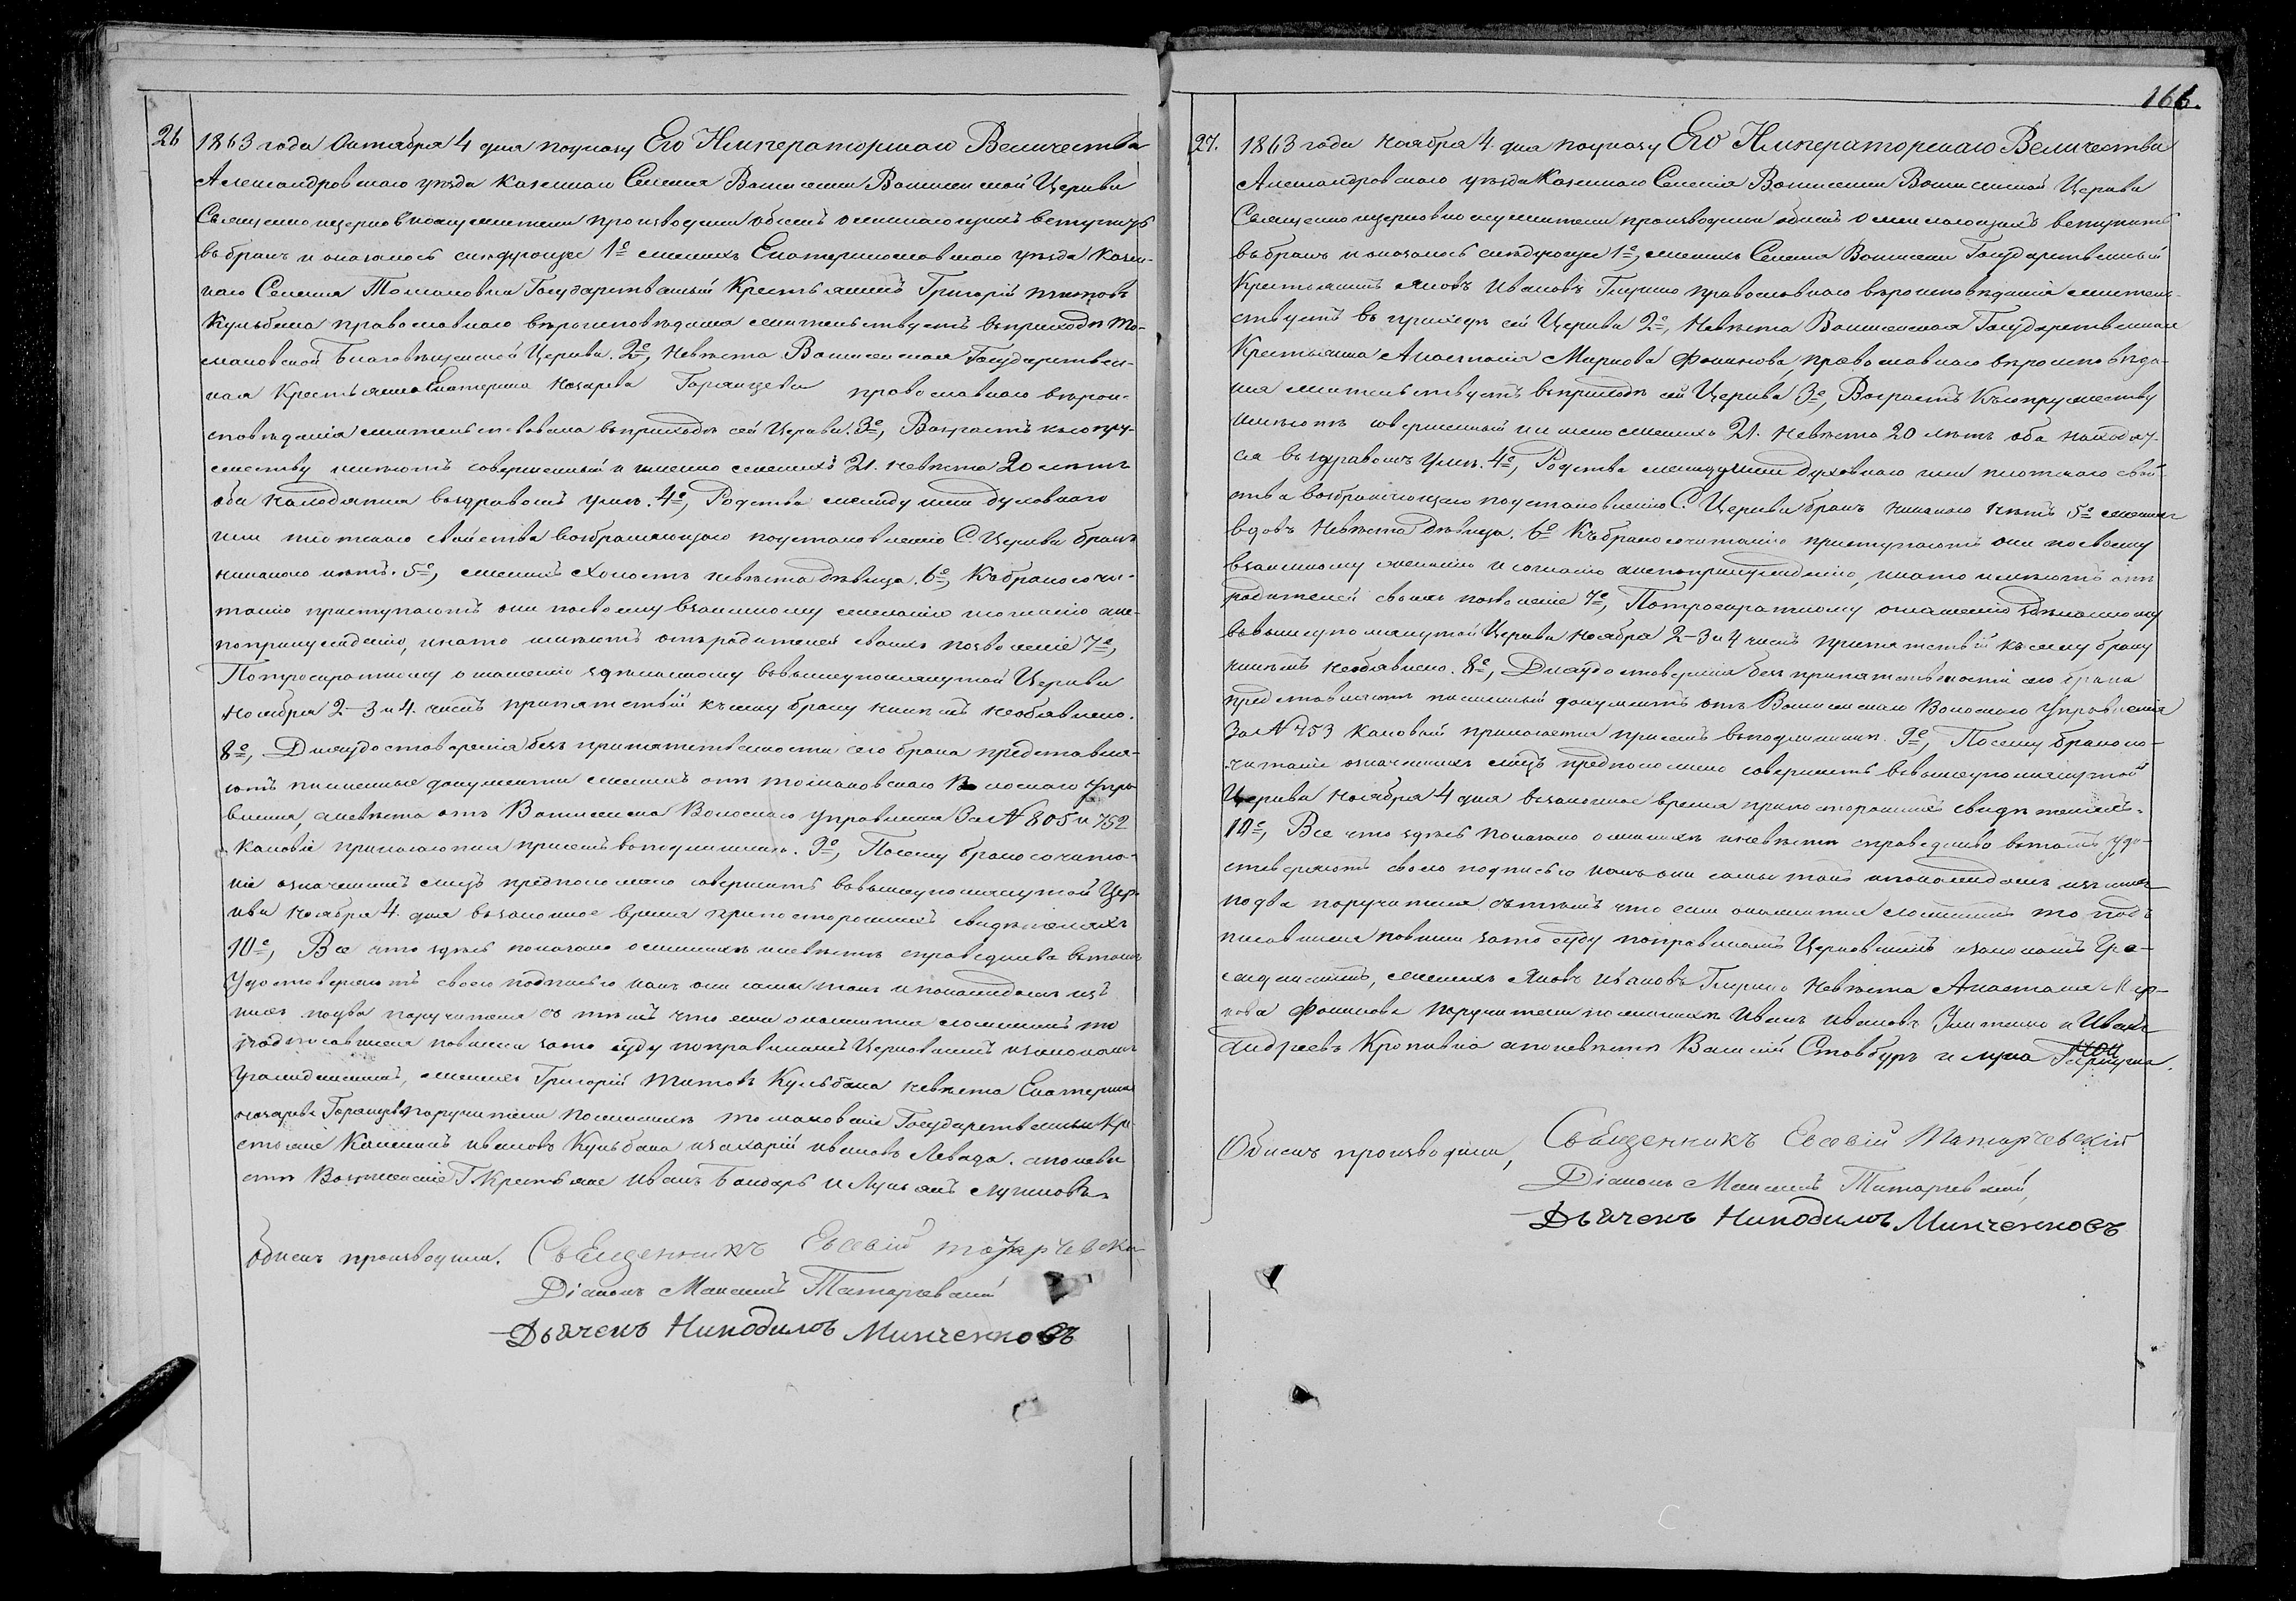 26
1863 года Октября 4 дня по указу Его Императорскаго Величества
Александровскаго уѣзда казеннаго Селенія Церкви
Священно и церковнослужители производили обыскъ о желающихъ вступить
въ бракъ и оказалось слѣдующее 1е женихъ Екатеринославскаго уѣзда казен-
наго Селенія Томаковки Государственный Крестьянинъ Григорій Титовъ
Кульбака православнаго вѣроисповѣданія жительствуетъ въ приходѣ То-
маковской Благовѣщенской Церкви. 2е, Невѣста Государствен-
ная Крестьянка Екатерина Назарева православнаго вѣрои-
сповѣданія жительствовала въ приходѣ сей Церкви. 3е, Возрастъ къ супру-
жеству имѣютъ совершенный и именно женихъ 21. невѣста 20 лѣтъ
оба находятся въ здравомъ умѣ. 4е, Родства между ими духовнаго
или плотскаго свойства возбраняющаго по установленію С. Церкви бракъ
никакого нѣтъ. 5е, женихъ холостъ невѣста дѣвица. 6е, Къ бракосоче-
танію приступаютъ они по своему взаимному желанію и согласію а не
по принужденію, и на то имѣютъ отъ родителей своихъ позволеніе 7е,
По троекратному оглашенію здѣланному въ вышеупомянутой Церкви
Ноября 2-3 и 4. чиселъ препятствій къ сему браку никѣмъ не объявлено.
8е, Для удостовѣренія безпрепятственности сего брака представля-
ютъ письменные документы женихъ отъ Томаковскаго Волоснаго Упра
вленія, а невѣста отъ Волоснаго Управленія За № 805 и 752
каковіе прилагаются при семъ въ подлинникѣ. 9е, Посему бракосочета-
ніе означенныхъ лицъ предположено совершить въ вышеупомянутой Цер-
кви Ноября 4. дня въ законное время при постороннихъ свидѣтеляхъ
10е, Все что здѣсь показано о женихѣ и невѣстѣ справедливо въ томъ
Удостовѣряютъ своею подписью какъ они сами такъ и по каждомъ изъ
нихъ по два поручителя съ тѣмъ что если окажится ложнымъ то
подписавшіеся повинны за то суду по правиламъ Церковнымъ и законамъ
Гражданскимъ, женихъ Григорій Титовъ Кульбака невѣста Екатерина
Назарева поручители по женихѣ Томаковскіе Государственные Кре
стьяне Ивановъ Кульбака и Захарій Ивановъ Левада. а по невѣ
стѣ Г. Крестьяне Иванъ Бондарь и
Обыскъ производили. Священникъ Евсевій Татарчевскій
Діаконъ Татарчевский
Дьячекъ Никодимъ Минченковъ
166.
27.
1863 года Ноября 4. дня по указу Его Императорскаго Величества
Александровскаго уѣзда Казеннаго Селенія Церкви
Священно и церковнослужители производили обыскъ о желающихъ вступить
въ бракъ и оказалось слѣдующее 1е, женихъ Селенія Государственный
Крестьянинъ Яковъ Ивановъ Глушко православнаго вѣроисповѣданія житель-
ствуетъ въ приходѣ сей Церкви 2е, Невѣста Государственная
Крестьянка Анастасія Маркова Фоминова, православнаго вѣроисповѣда-
нія жительствуетъ въ приходѣ сей Церкви 3е, Возрастъ къ супружеству
имѣютъ совершенный и именно женихъ 21. невѣста 20 лѣтъ оба находят-
ся въ здравомъ умѣ. 4е, Родства между ими духовнаго или плотскаго свой-
ства возбраняющаго по установленію С. Церкви бракъ никакого нѣтъ 5е женихъ
вдовъ невѣста дѣвица. 6е Къ бракосочетанію приступаютъ они по своему
взаимному желанію и согласію а не по принужденію, и на то имѣютъ отъ
родителей своихъ позволеніе 7е, По троекратному оглашенію здѣланному
въ вышеупомянутой Церкви Ноября 2-3 и 4 чиселъ препятствій къ сему браку
никѣмъ не объявлено. 8е, Для удостовѣренія безпрепятственности сего брака
представляютъ письменный документъ отъ Волоснаго Управленія
За № 753 каковый прилагается при семъ въ подлинникѣ. 9е, Посему бракосо-
четаніе означенныхъ лицъ предположено совершить въ вышеупомянутой
Церкви Ноября 4 дня въ законное время при постороннихъ свидѣтеляхъ.
10е, Все что здѣсь показано о женихѣ и невѣстѣ справедливо въ томъ удо-
стовѣряютъ своею подписью какъ они сами такъ и по каждомъ изъ нихъ
по два поручителя съ тѣмъ что если окажится ложнымъ то под-
писавшіеся повинны за то суду по правиламъ Церковнымъ и законамъ Гра-
жданскимъ, женихъ Яковъ Ивановъ Глушко Невѣста Анастасія Мар-
кова Фоминова поручители по женихѣ Иванъ Ивановъ и Иванъ
Андреевъ Кропивка а по невѣстѣ Василій Стовбуръ и Лука
Обыскъ производили, Священникъ Евсевій Татарчевскій
Діаконъ Татарчевский,
Дьячекъ Никодимъ Минченковъ